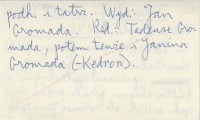 podh. i tatrz. Wyd: Jan
Gromada. Red. Tadeusz Gro-
mada, potem tenże i Janina
Gromada (-Kedroń).